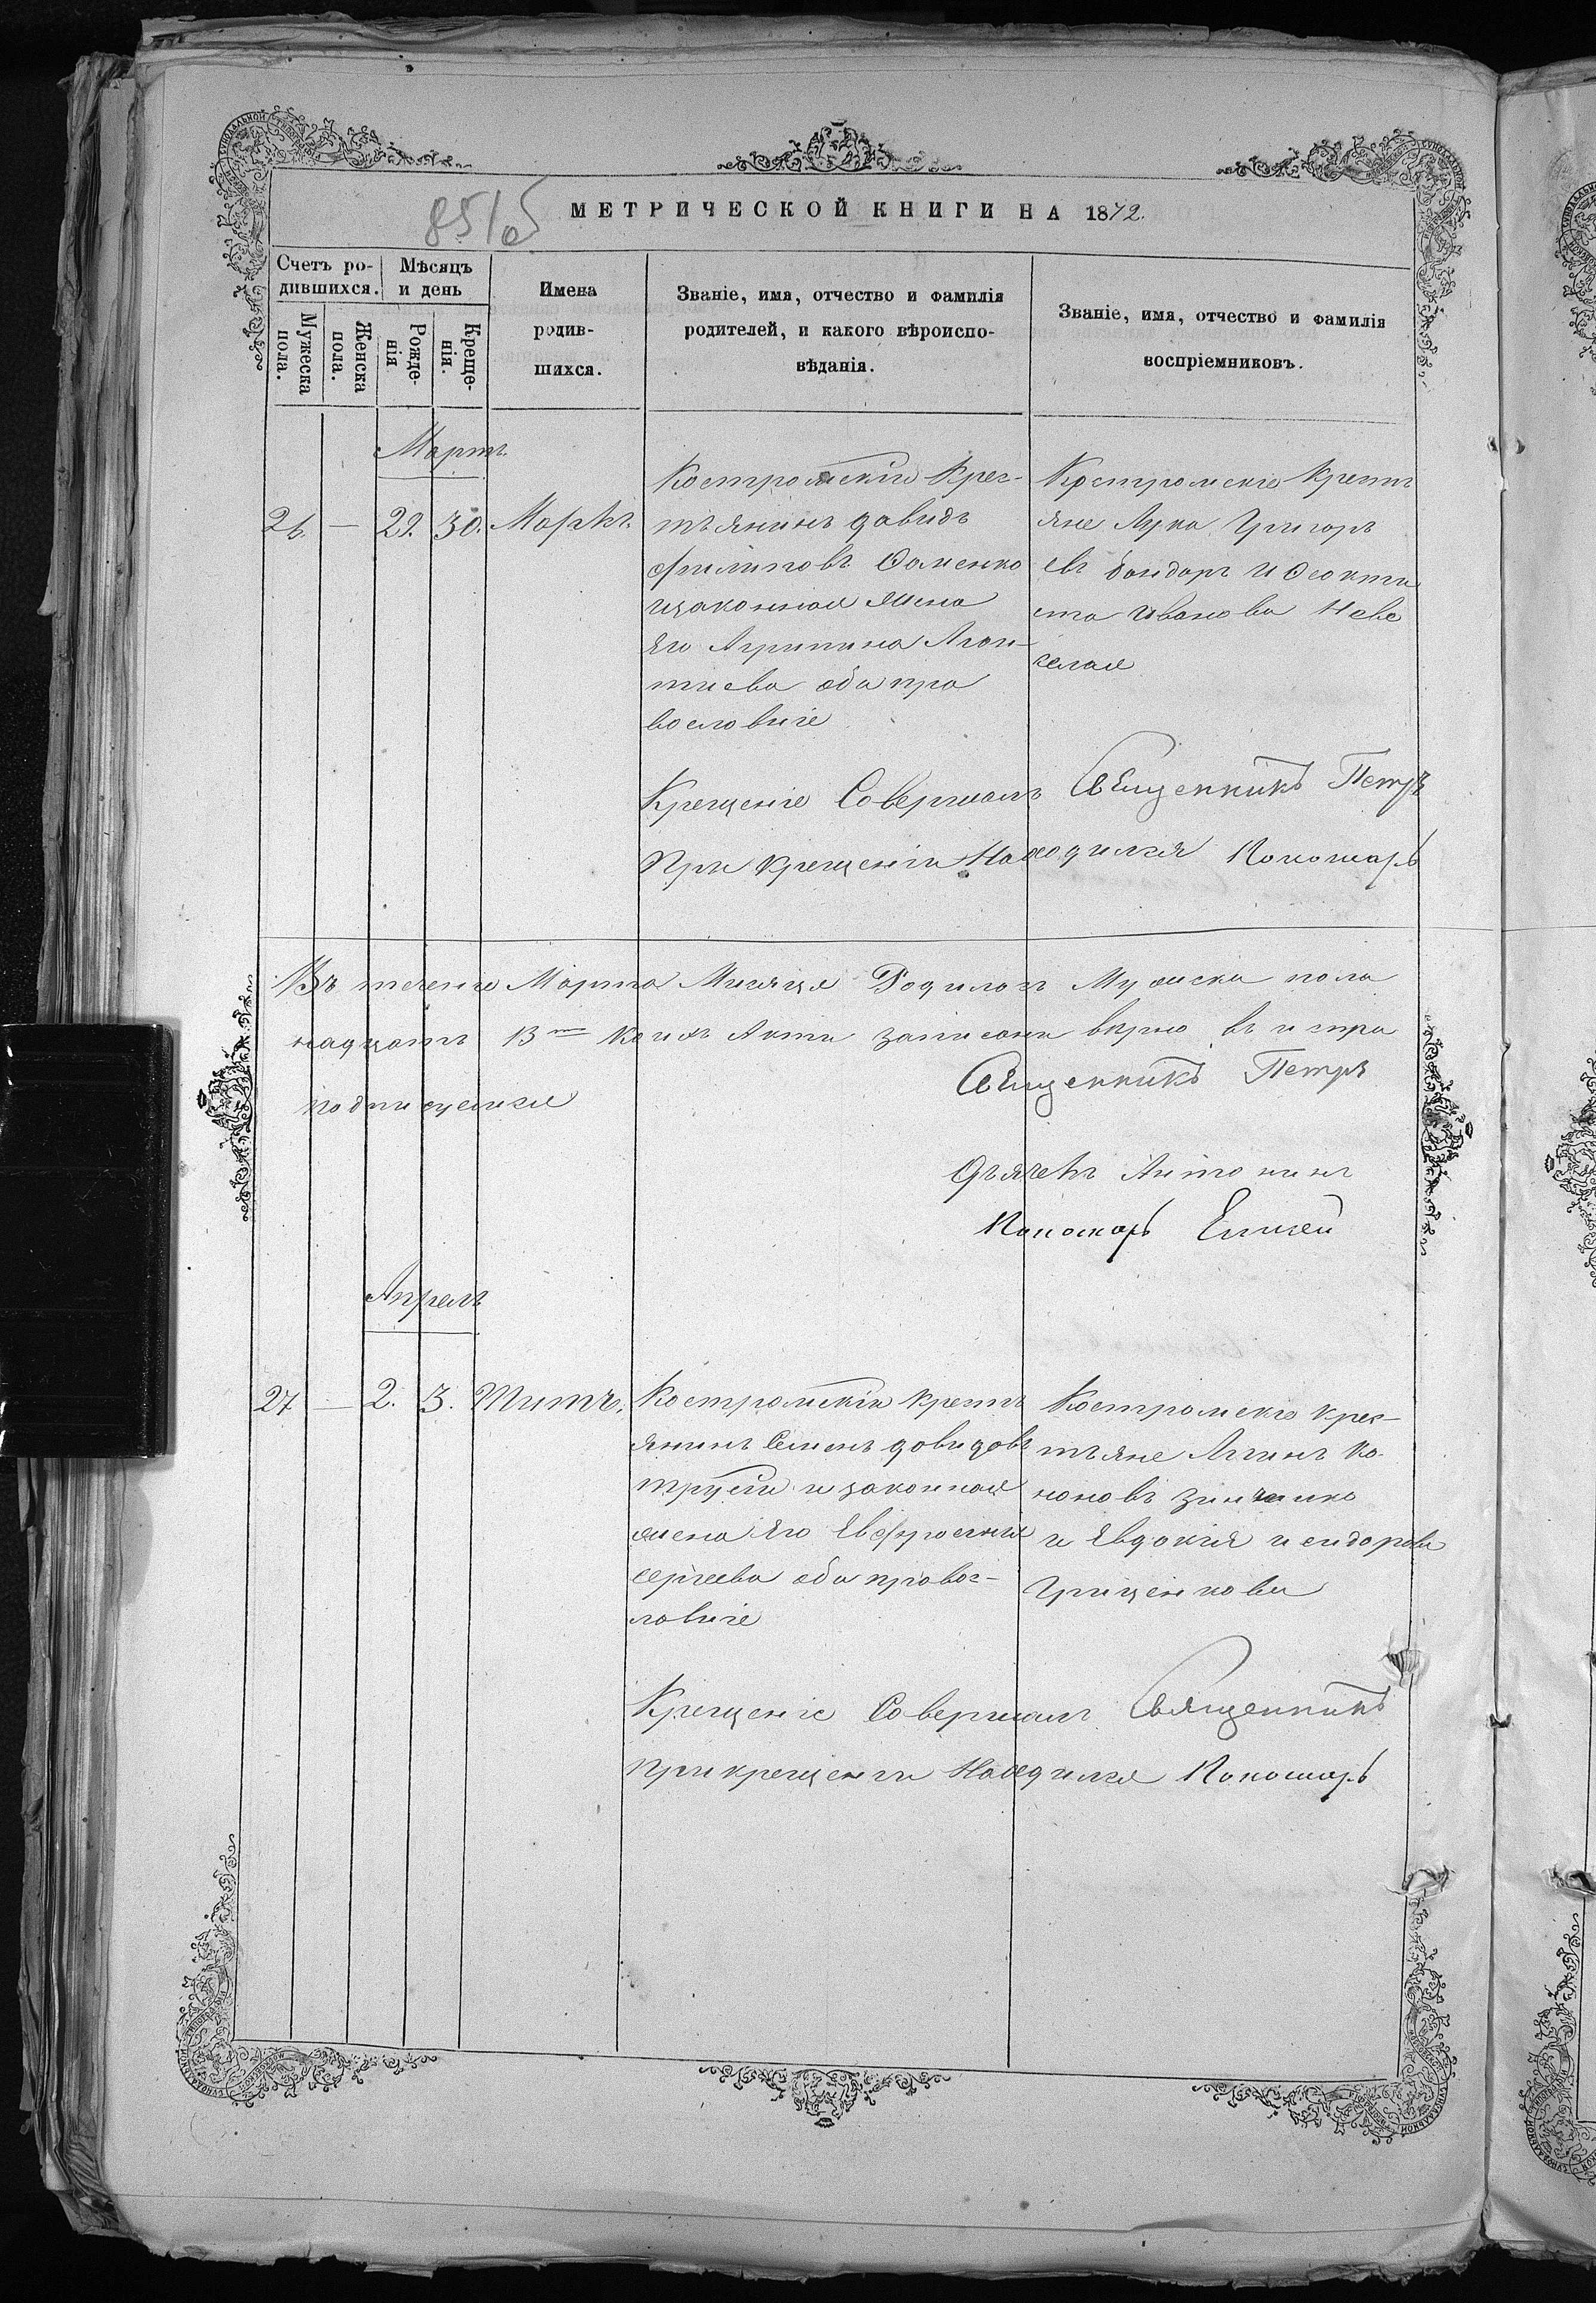 МЕТРИЧЕСКОЙ КНИГИ НА 1872.
Счетъ ро-
дившихся.
Мѣсяцъ
и день
Мужеска
пола.
Женска
пола.
Рожде-
нія
Креще-
нія.
Имена
родив-
шихся.
Званіе, имя, отчество и фамилія
родителей, и какого вѣроиспо-
вѣданія.
Званіе, имя, отчество и фамилія
воспріемниковъ.
Мартъ
26. — 29. 30. Маркъ.
Костромскій Крес-
тьянинъ давидъ
филиповъ Фоменко
изаконная жена
его Агрипина Леон-
тиева оба пра
вославніе
Костромскіе Кресть
яне Лука Григорь
евъ бондарь и Феокти
ста иванова Неве
селая
Крещеніе Совершалъ Священникъ Петръ
При крещеніи Находился Пономарь
Въ теченіе Марта Мисяця Родилось Мужеска пола
надцать коихъ Акти записани вѣрно въ
подписуемся
Священникъ Петръ
Дьячекъ Антонинъ
Пономарь Елисей
Апрель
27 — 2. 3. Титъ.
Костромскій кресть
янинъ Семенъ давидовъ
и законная
жена его Евфросинія
сергеева оба правос-
лавніе
Костромскіе крес-
тьяне Логинъ ко-
ноновъ зинченко
и Евдокія исидорова
Гриценкова
Крещеніе Совершалъ Священникъ
При крещеніи Находился Пономарь